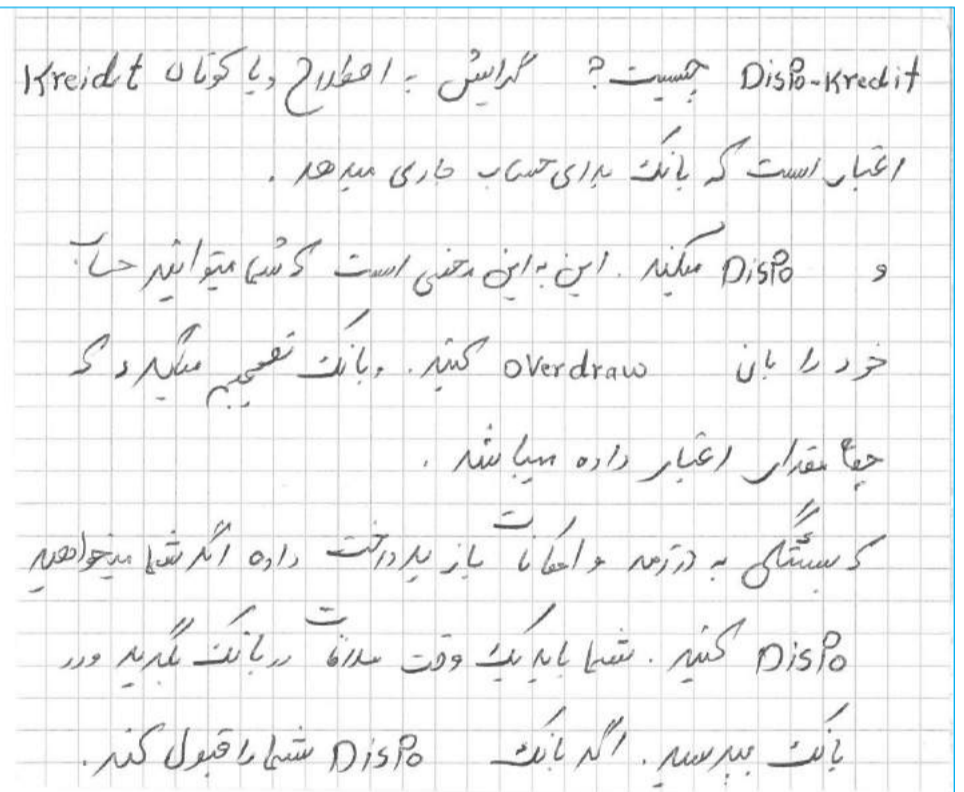 Dispo-Kredit چیست؟ گرایش - اصطلاح ویا کوتاه Kreidit
اعتبار است که بانک برای حساب جاری میدهد.
و Dispo میکنید. این به این معنی است که شما میتوانید حساب
خود را بان overdraw کنید. وبانک تصمیم میگیرد که
مقدار اعتبار داده میباشد.
که بستگی به درآمد و امکانات باز پرداخت داده اگر شما میخواهید
Dispo کنید. شما باید یک وقت ملاقات در بانک بگیرید ودر
بانک بپرسید. اگر بانک Dispo شما را قبول کند.